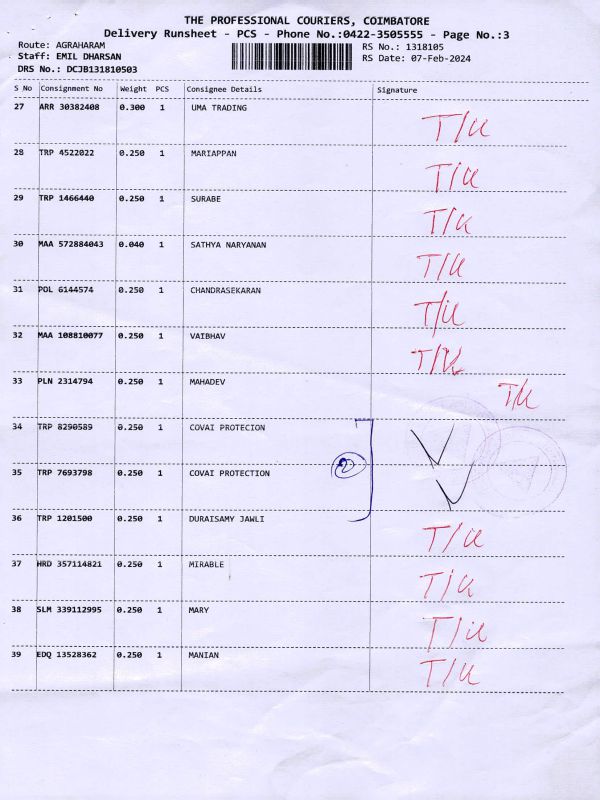 THE PROFESSIONAL COURIERS, COIMBATORE
Delivery Runsheet - PCS - Phone No.:0422-3505555 - Page No.:3
Route: AGRAHARAM
Staff: EMIL DHARSAN
DRS No.: DCJB131810503
RS No.: 1318105
RS Date: 07-Feb-2024
S No Consignment No Weight PCS Consignee Details Signature
27 ARR 30382408 0.300 1 UMA TRADING T/U
28 TRP 4522022 0.250 1 MARIAPPAN T/U
29 TRP 1466440 0.250 1 SURABE T/U
30 MAA 572884043 0.040 1 SATHYA NARYANAN T/U
31 POL 6144574 0.250 1 CHANDRASEKARAN T/U
32 MAA 108810077 0.250 1 VAIBHAV T/U
33 PLN 2314794 0.250 1 MAHADEV T/U
34 TRP 8290589 0.250 1 COVAI PROTECION
2
35 TRP 7693798 0.250 1 COVAI PROTECTION
36 TRP 1201500 0.250 1 DURAISAMY JAWLI T/U
37 HRD 357114821 0.250 1 MIRABLE T/U
38 SLM 339112995 0.250 1 MARY T/U
39 EDQ 13528362 0.250 1 MANIAN T/U